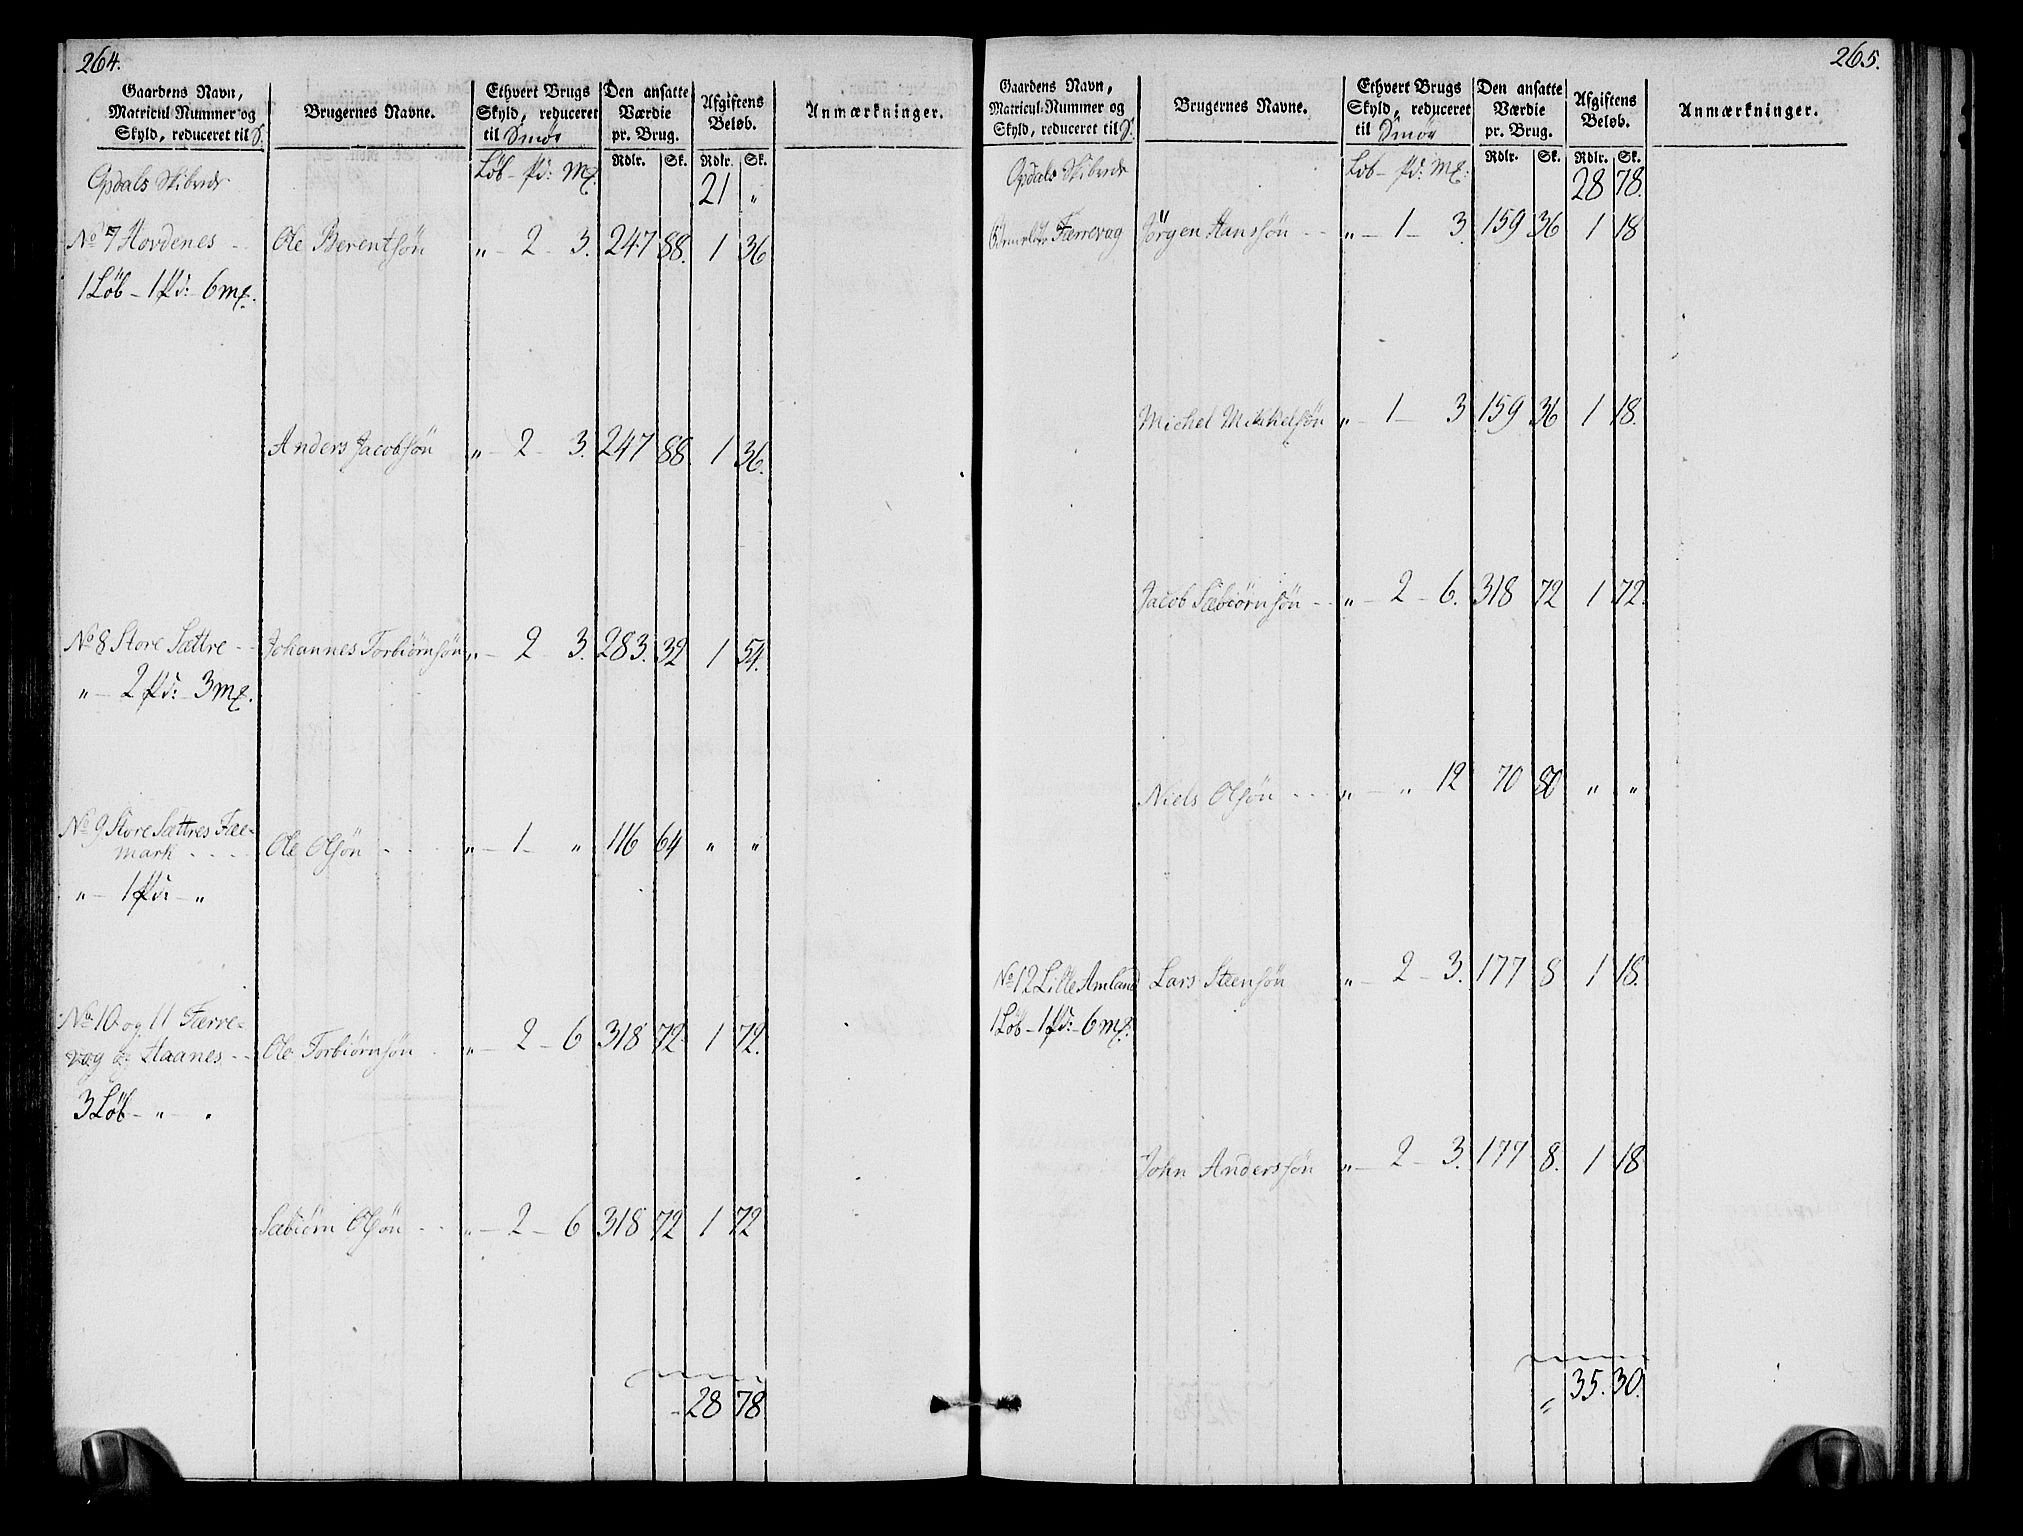 264.
Gaardens Navn, Matricul-Nummer og Skyld, reduceret til S. | Brugernes Navne. | Ethvert Brugs Skyld, reduceret til Smör | Den ansatte Værdie pr. Brug. | Afgiftens Beløb. | Anmærkninger.
Rdlr. Sk. Rdlr. Sk.
Opdals Skibrede Löb - pd: mk. 21 "
No 7 Hovdenes - Ole Berentsön " - 2 - 3. 247 88. 1 36
1 Löb - 1 pd: - 6 mk.
Anders Jacobsön " - 2 - 3. 247 88. 1 36.
No 8 Store Sættre - - Johannes Torbiörnsön " - 2 - 3. 283. 32 1 54.
" - 2 pd: - 3 mk.
No 9 Store Sættres Fæe-
mark - - - - Ole Olsön - - - " - 1 - " 116 64 " "
" - 1 pd: - "
No 10 og 11 Færre-
vog og Haanes - - Ole Torbiörnsön - " - 2 - 6 318 72 1 72.
3 Löb - " - "
Sæbiörn Olsön - - " - 2 - 6 318 72 1 72
28 78
265.
Gaardens Navn, Matricul-Nummer og Skyld, reduceret til S. | Brugernes Navne. | Ethvert Brugs Skyld, reduceret til Smör | Den ansatte Værdie pr. Brug. | Afgiftens Beløb. | Anmærkninger.
Rdlr. Sk. Rdlr. Sk.
Opdals Skibrede Löb - pd: mk. 28 78.
Færrevog Jörgen Hanssön - - " - 1 - 3. 159 36 1 18
Michel Mikkelsön " - 1 - 3 159 36 1 18.
Jacob Sæbiörnsön - - " - 2 - 6. 318 72 1 72.
Niels Olsön - - - " - " 12 70 80 " "
No 12 Lille Amland Lars Steensön " - 2 - 3. 177 8 1 18.
1 Löb - 1 pd: - 6 mk.
John Anderssön " - 2 - 3. 177 8. 1 18
35. 30.